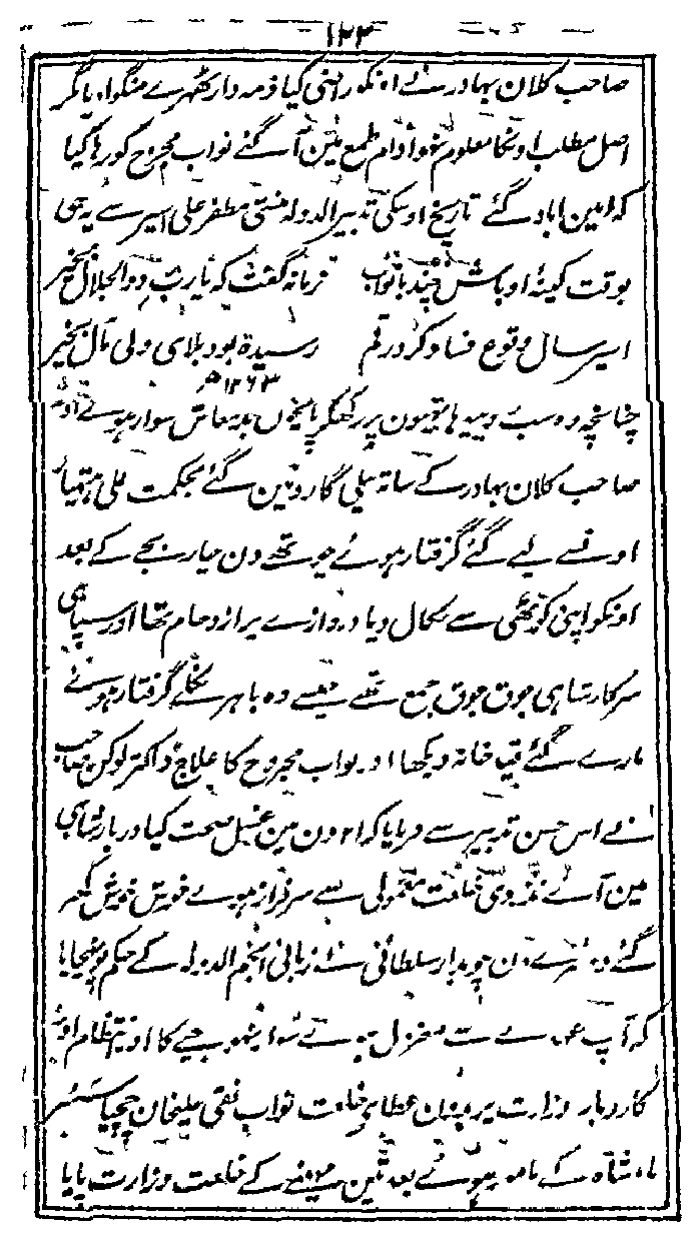 ۱۲۳
صاحب کلان بہادر نے اونکو راضی کیا ذمہ دار ٹھہرے منگوا دیا گر
اصل مطلب اونکا معلوم نہوا دام طمع مین آ گئے نواب مجروح کو رہا کیا
کہ امین اباد گئے تاریخ اوسکی تدبیر الدولہ منشی مظفر علی اسیر نے یہ کہی
بوقت کینۂ اوباش چند با نواب زمانہ گفت کہ یارب ذو الجلال بخیر
اسیر سال وقوع فساد کرد رقم رسیدہ بود بلای ولی مآل بخیر
۱۲۶۳ھ
چنانچہ وہ سب روپیہ ہاتھیون پر رکھکر پانچون بدمعاش سوار ہوئے اور
صاحب کلان بہادر کے ساتہ بیلی گارد مین گئے بحکمت عملی ہتھیار
اونسے لیے گئے گرفتار ہوئے چوتھے دن چار بجے کے بعد
اونکو اپنی کوٹھی سے نکال دیا دروازے پر ازدحام تھا اور سپاہی
سرکار شاہی جوق جوق جمع تھے جیسے وہ باہر نکلے گرفتار ہوئے
مارے گئے قید خانہ دیکھا اور نواب مجروح کا علاج ڈاکٹر لوکن صاحب
نے اس حسن تدبیر سے فرمایا کہ ۲۱ دن مین غسل صحت کیا دربار شاہی
مین آئے نذر دی خلعت معمولی سے سرفراز ہوے خوش خوش گھر
گئے دوسرے دن چوبدار سلطانی نے زبانی انجم الدولہ کے حکم پہنچایا
کہ آپ عہدے سے معزول ہوئے سوار نہو جیے گا اور انتظام اور
کاروبار وزارت بدون عطای خلعت نواب نقی علیخان چچیا سسر
بادشاہ کے مامور ہوئے بعد تین مہینے کے خلعت وزارت پایا